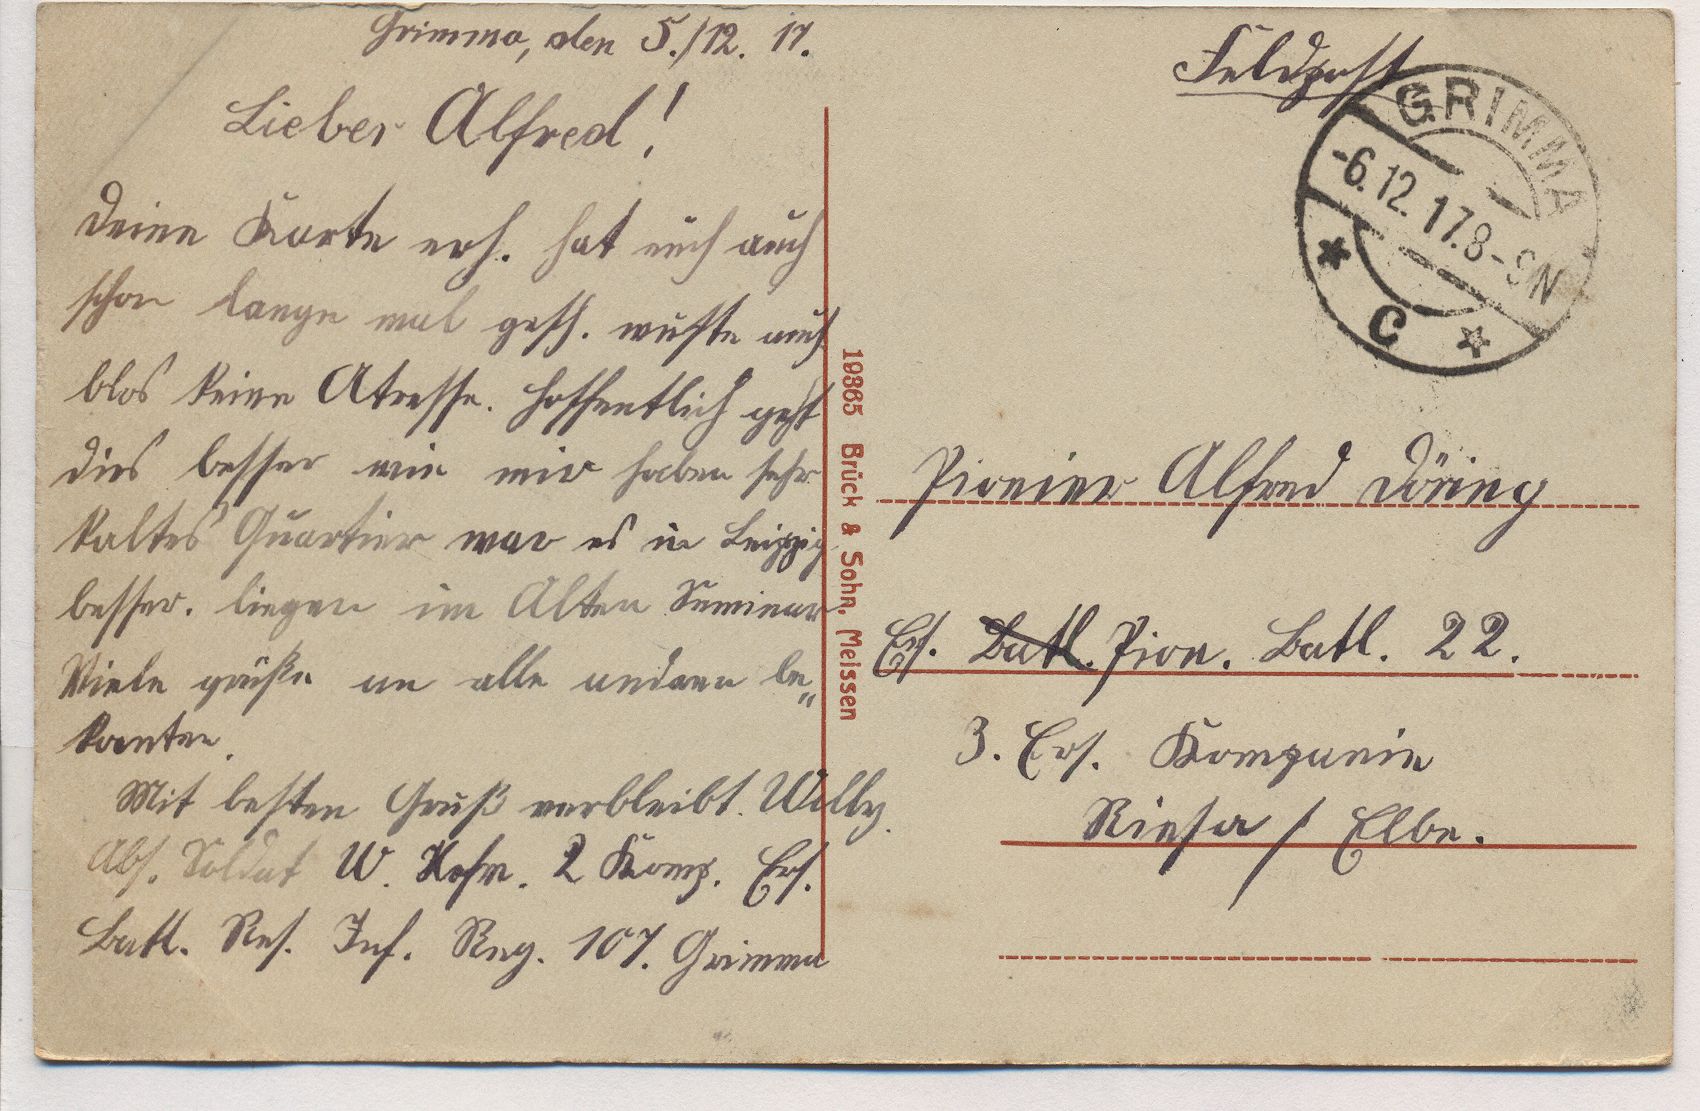 Grimma, den 5./12. 17.
Lieber Alfred!
Deine Karte erh. hat mich auch
schon lange mal gesch. wuste auch
blos keine Atresse. Hoffentlich geht
dirs besser wie mir haben sehr
kaltes Quartier war es in Leipzig
besser. liegen im Alten Seminar
Viele grüße an alle andren be„
kanten.
Mit besten Gruß verbleibt. Willy.
Abs. Soldat W. 2 Komp. Ers.
Batl. Res. Inf. Reg. 107. Grimma
19865 Brück & Sohn, Meissen
Feldpost
GRIMMA
-6.12.17.8-9N
* C *
Pionier Alfred Döring
Ers. Batl. Pion. Batl. 22.
3. Ers. Kompanie
Riesa / Elbe.